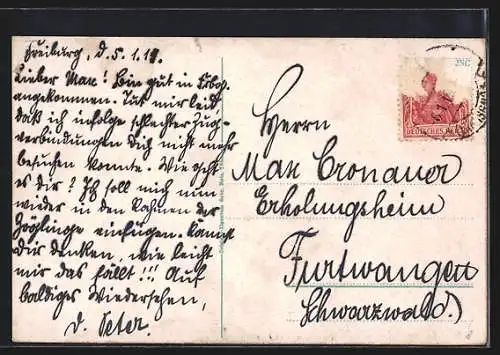 Freiburg, d. 5.1.19.
Lieber Max! Bin gut in Frbg.
angekommen. Tut mir leid
daß ich infolge schlechter Zug-
verbindungen Dich nicht mehr
besuchen konnte. Wie geht
es dir? Ich soll mich nun
wieder in den Rahmen der
Zöglinge einfügen. Kannst
dir denken, wie leicht
mir das fällt!!! Auf
baldiges Wiedersehen,
d. Peter.
Herrn
Max Cronauer
Erholungsheim
Furtwangen
Schwarzwald.)
DEUTSCHES